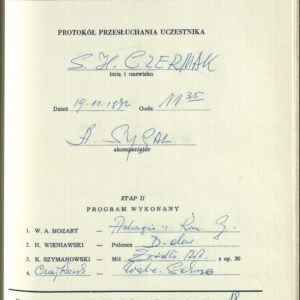 PROTOKÓŁ PRZESŁUCHANIA UCZESTNIKA
S. H. CZERMAK
imię i nazwisko
Dzień 19-11-1972 Godz. 11 35
A. SYGAL
akompaniator
ETAP II
PROGRAM WYKONANY
1. W. A. MOZART — Adagio z Kon. G.
2. H. WIENIAWSKI — Polonez D-dur
3. K. SZYMANOWSKI — Mit Źródło z op. 30
4. Czajkowski —
18